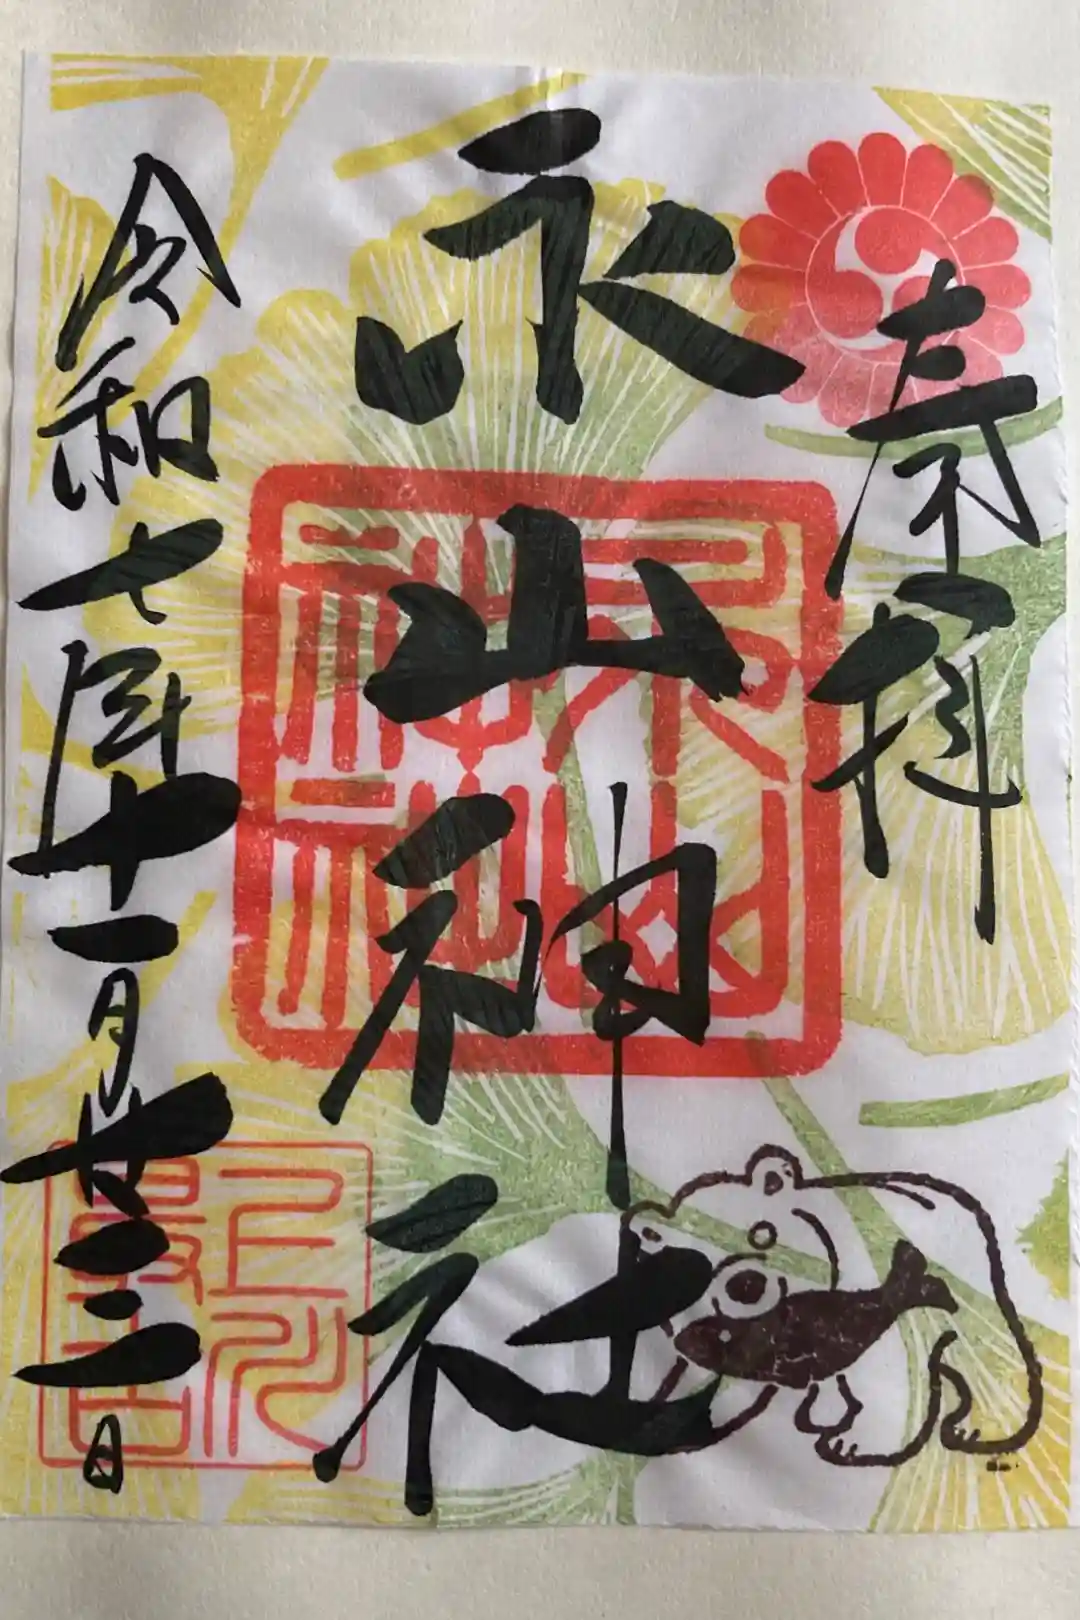 奉拝
永山神社
永山神社
令和七年十一月廿三日